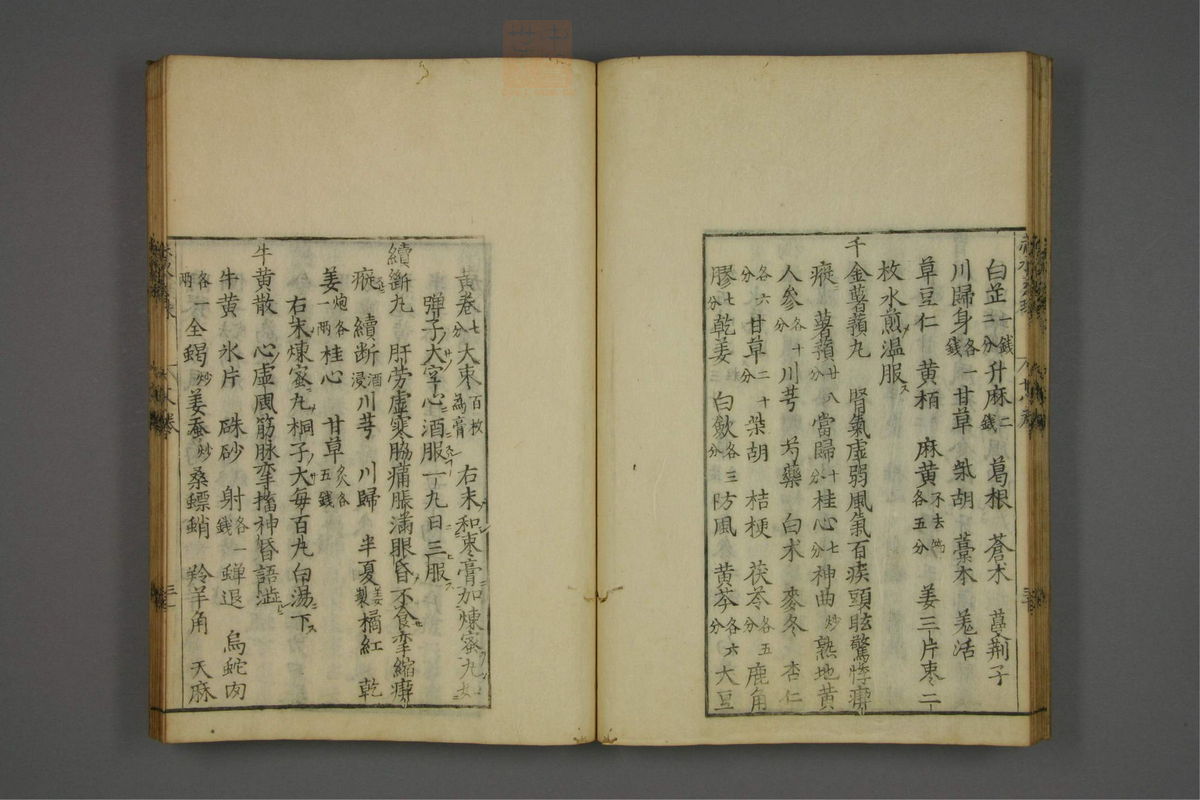 白芷一錢二分升麻二錢 葛根 蒼朮 蔓荊子
川歸身各一錢甘草 柴胡 藁本 羗活
草豆仁 黄栢 麻黄不去節各五分 姜三片棗二
枚水煎溫服ス
千金薯蕷丸 腎氣虛弱風氣百疾頭眩驚悸癇
瘲 薯蕷廿八分當歸十分桂心七分神曲炒熟地黄
人參各十分川芎 芍藥 白朮 麥冬 杏仁
各六分甘草二十分柴胡 桔梗 茯苓各五分鹿角
膠七分乾姜三 白斂各三分防風 黄芩各六分大豆
黄卷七分大棗百枚為膏 右末和棗膏加煉蜜丸如
彈子大空心酒服一丸日三服
續斷丸 肝劳虛寒脇痛脹滿眼昏不食挛縮癇
瘲 續断酒浸川芎 川歸 半夏姜製橘紅 乾
姜炮各一兩桂心 甘草炙各五錢
右末煉蜜丸桐子大每百丸白湯下ス
牛黄散 心虛風筋脉挛搐神昏語澁
牛黄 氷片 硃砂 射各一錢蟬退 烏蛇肉
各一兩全蝎炒姜蚕炒桑螵蛸 羚羊角 天麻